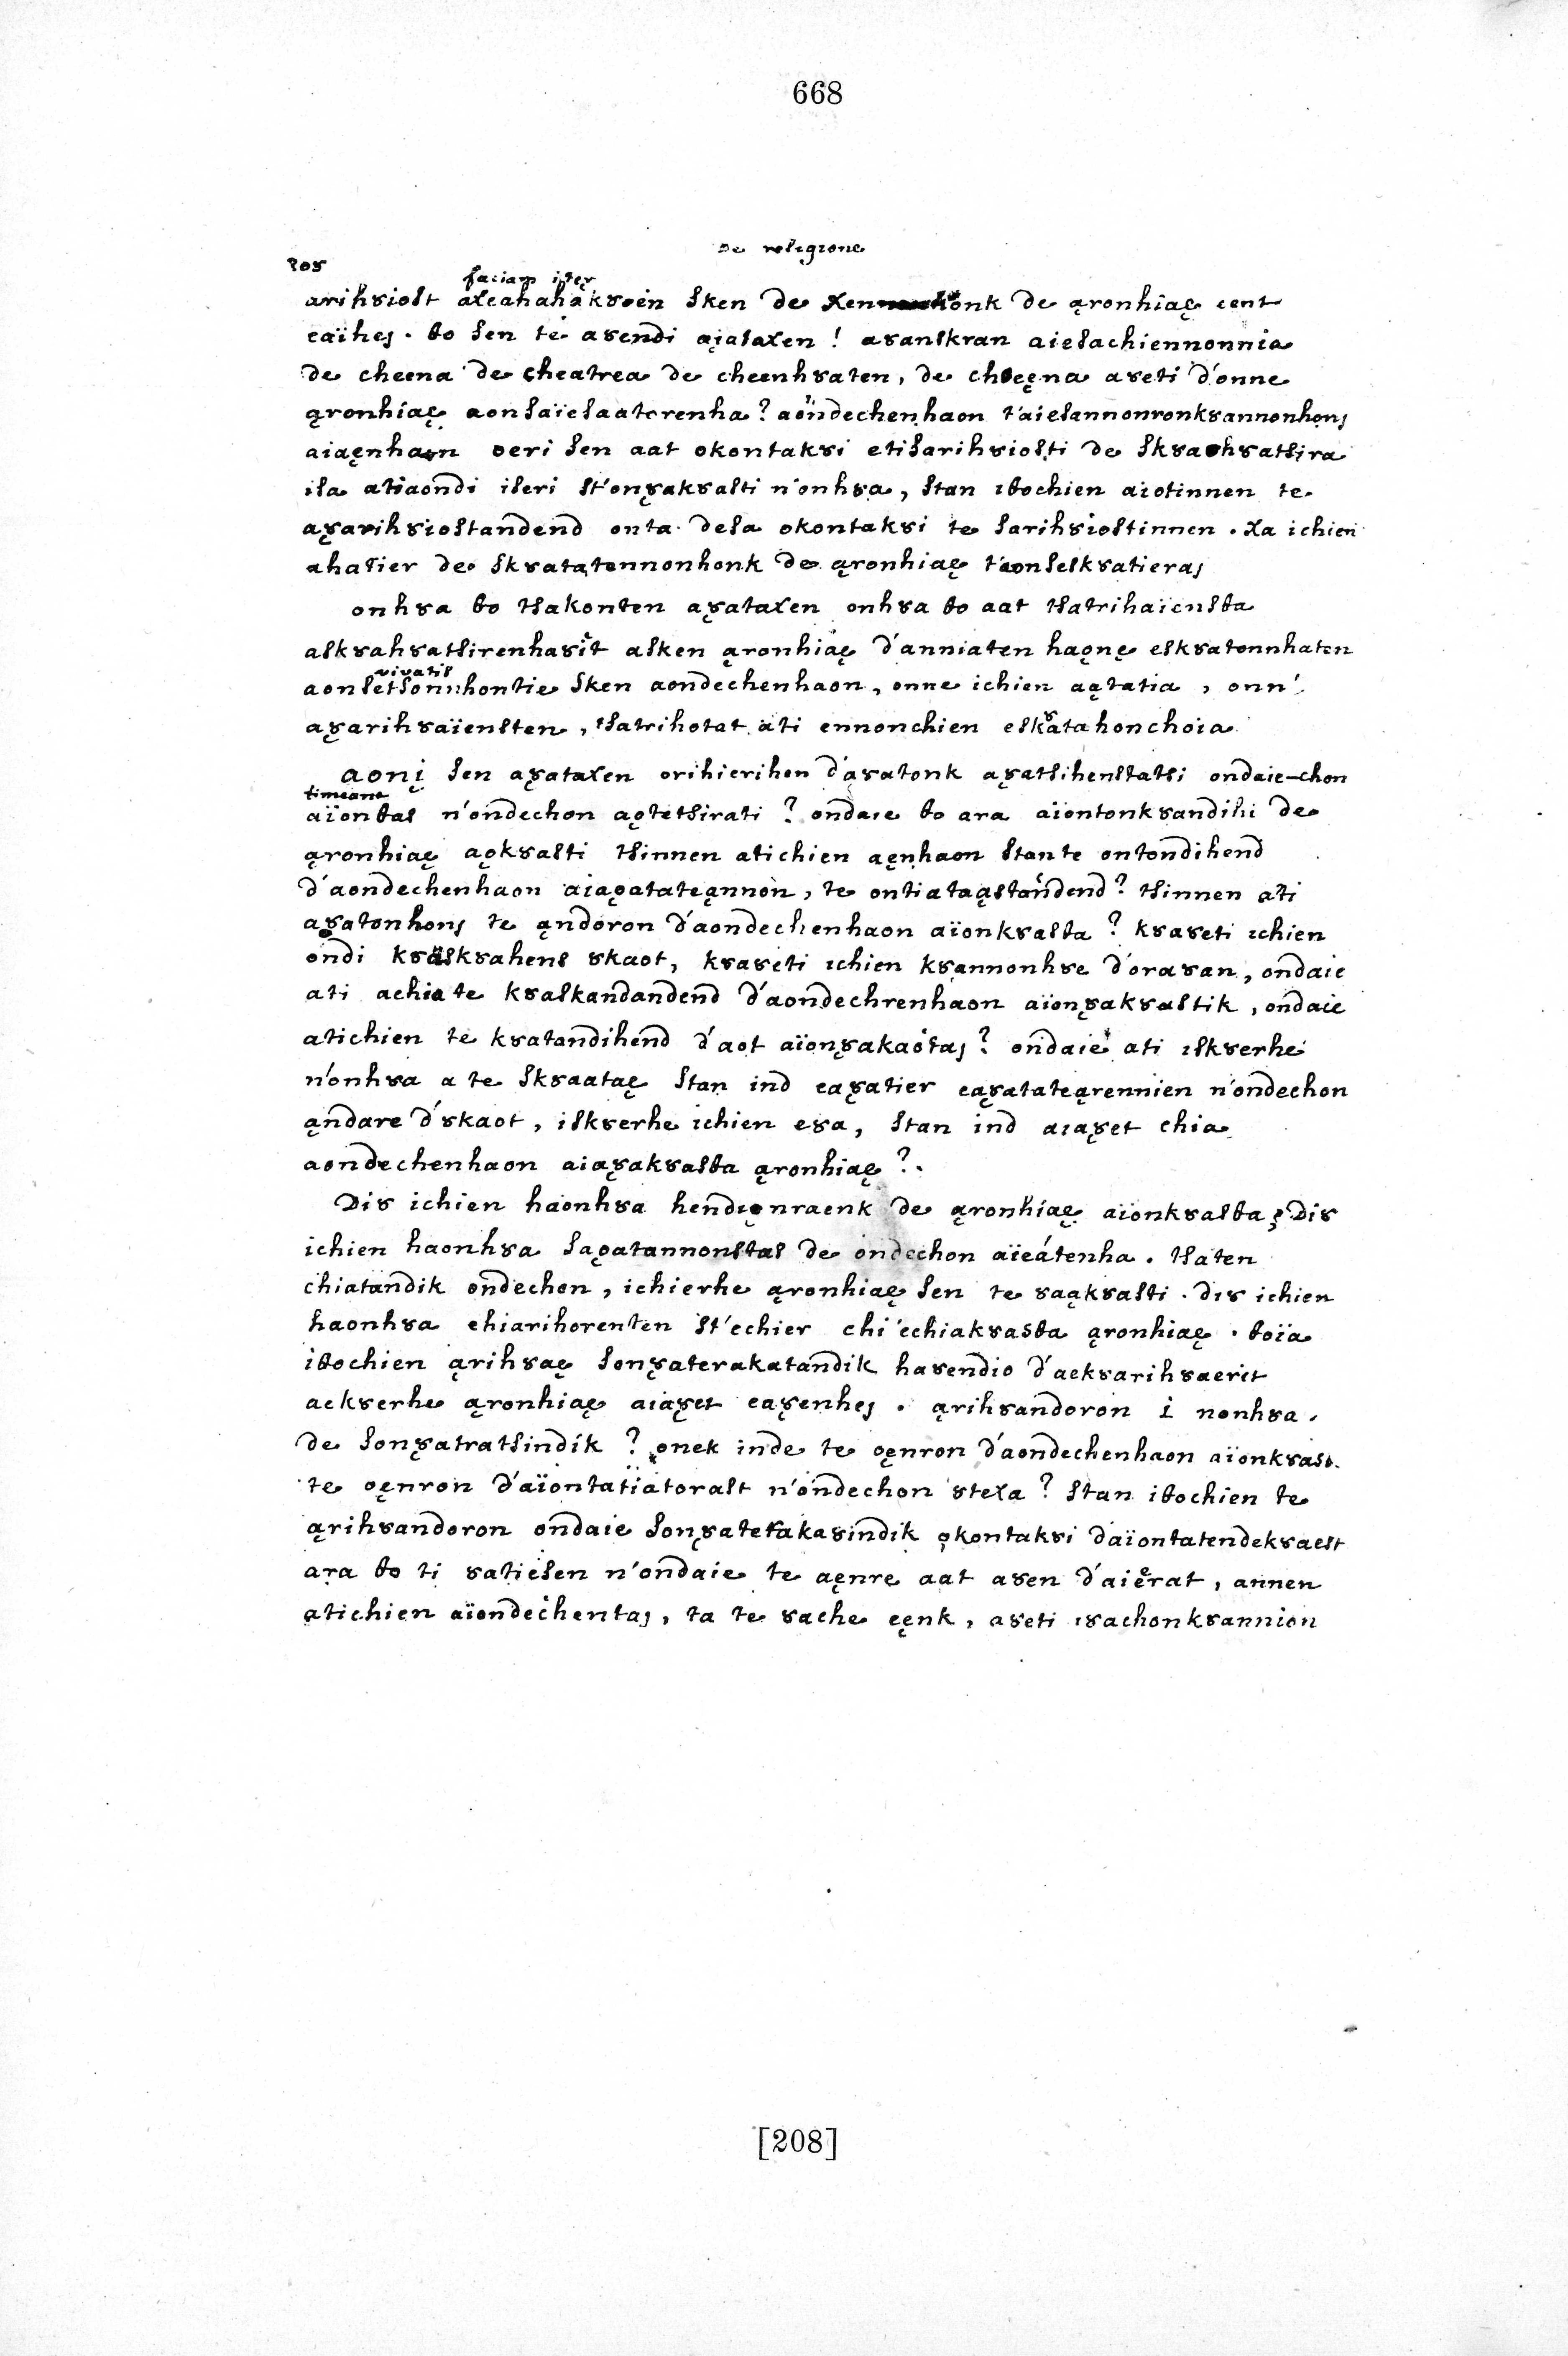 668
De religione
208
faciam iter
arihȣiost axeahahakȣoin sken de xen onk de ąronhiaę eent
eaïhes. θo sen te aȣendi ąiataxen ! aȣanskran aiesachiennonnia
de cheena de cheatrea de cheenhȣaten, de choeęna aȣeti d'onne
ąronhiaę aonsaïesaatorenha? aondechenhaon t'aiesannonronkȣannonhons
aiaęnhaon oeri sen aat okontakȣi etisarihȣiosti de skȣaohȣatsira
isa atiaondi iseri st'onȣ̨akȣasti n'onhȣa, stan iθochien aiotinnen te
aȣ̨arihȣiostandend onta desa okontakȣi te sarihȣiostinnen. xa ichien
ahatier de skȣatatennonhonk de ąronhiaę t'aonseskȣatieras
onhȣa θo tsakonten aȣ̨ataxen onhȣa θo aat tsatrihaiensθa
askȣahȣatsirenhaȣit asken ąronhiaę d'anniaten haǫnę eskȣatonnhaten
vivatis
aonsetsonnhontie sken aondechenhaon, onne ichien aątatia, onn'
aȣ̨arihȣaïensten, tsatrihotat ati ennonchien eskȣatahonchoia
aonį sen aȣ̨ataxen orihierihen d'aȣ̨atonk aȣ̨atsihenstatsi ondaie-chon
timeant
aïonθas n'ondechon aǫtetsirati ? ondaie θo ara aïontonkȣandihi de
ąronhiaę aǫkȣasti tsinnen atichien aęnhaon stante ontondihend
d'aondechenhaon aiaǫatateąnnon, te ontiataąstandend? tsinnen ati
aȣ̨atonhons te ąndoron d'aondechenhaon aïonkȣasta ? kȣaȣeti ichien
ondi kȣaskȣahens ȣkaot, kȣaȣeti ichien kȣannonhȣe d'oraȣan, ondaie
ati achiate kȣaskandandend d'aondechrenhaon aïonȣ̨akȣastik, ondaie
atichien te kȣatandihend d'aot aïonȣ̨akaotas? ondaie ati iskȣerhe
n'onhȣa a te skȣaataę stan ind eaȣ̨atier eaȣ̨atateąrennien n'ondechon
ąndare d'ȣkaot, iskȣerhe ichien eȣa, stan ind aiaȣ̨et chia
aondechenhaon aiaȣ̨akȣasθa ąronhiaę ?.
Diȣ ichien haonhȣa hendiǫnraenk de ąronhiaę aïonkȣasθa; Diȣ
ichien haonhȣa saǫatannonstas de ondechon aïeátenha. tsaten
chiatandik ondechon, ichierhe ąronhiaę sen te ȣaąkȣasti. Diȣ ichien
haonhȣa chiarihorenten st'echier chi'echiakȣasθa ąronhiaę. θoïa
iθochien ąrihȣaę sonȣ̨aterakatandik haȣendio d'aekȣarihȣaerit
aekȣerhe ąronhiaę aiaȣ̨et eaȣ̨enhes. ąrihȣandoron i nonhȣa.
de sonȣ̨atratsindik ? onek inde te oęnron d'aondechenhaon aïonkȣasθ.
te oęnron d'aïontatiatorast n'ondechon ȣtexa ? stan iθochien te
ąrihȣandoron ondaie sonȣ̨aterakaȣindik ǫkontakȣi d'aïontatendekȣaest
ara θo ti ȣatiesen n'ondaie te aęnrę aat aȣen d'aierat, annen
atichien aïondechentas, ta te ȣache eęnk, aȣeti iȣachonkȣannion
[208]